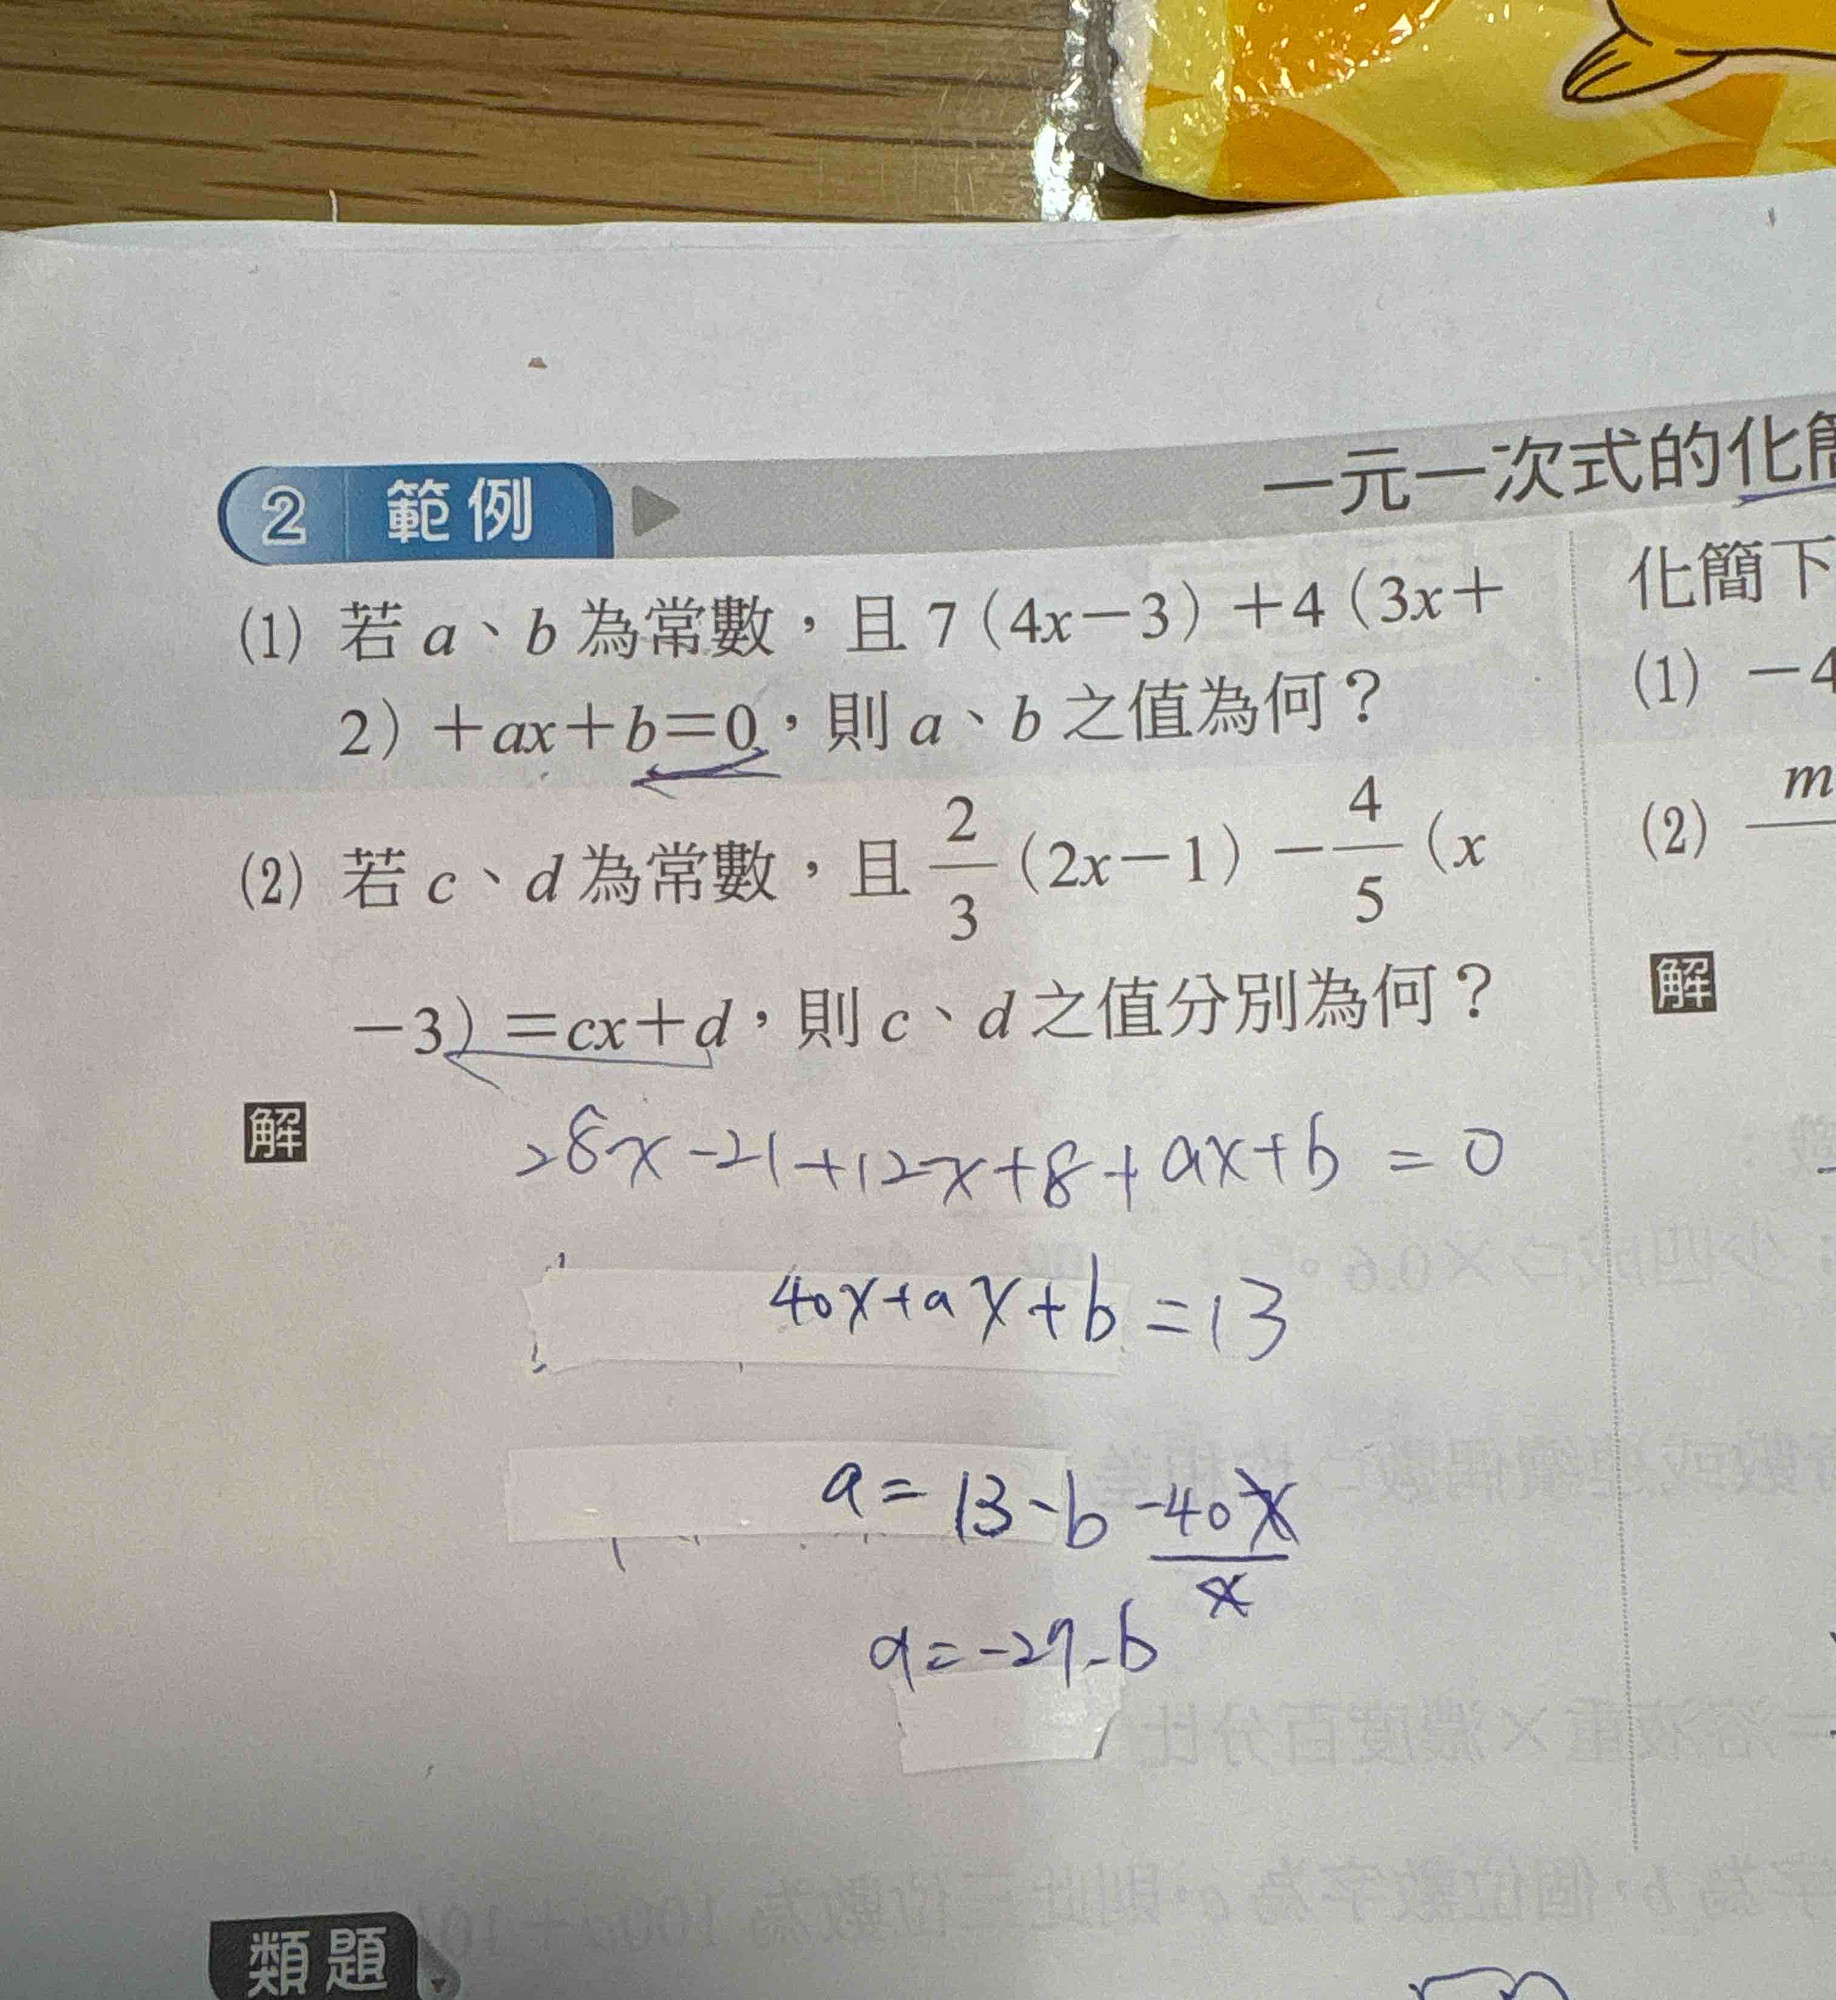 一元一次式的化
2 範例
(1) 若 a、b 為常數，且 7（4x－3）＋4（3x＋
2）＋ax＋b＝0，則 a、b 之值為何？
(2) 若 c、d 為常數，且 2/3（2x－1）－4/5（x
－3）＝cx＋d，則 c、d 之值分別為何？
解
28x-21+12x+8+ax+b=0
40x+ax+b=13
a=13-b-40x/x
a=-27-b
類題
化簡下
(1) －4
(2) m
解